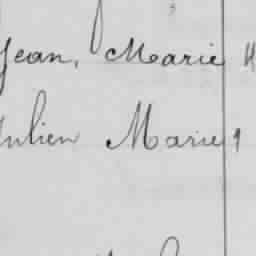 Jean, Marie
Julien Marie